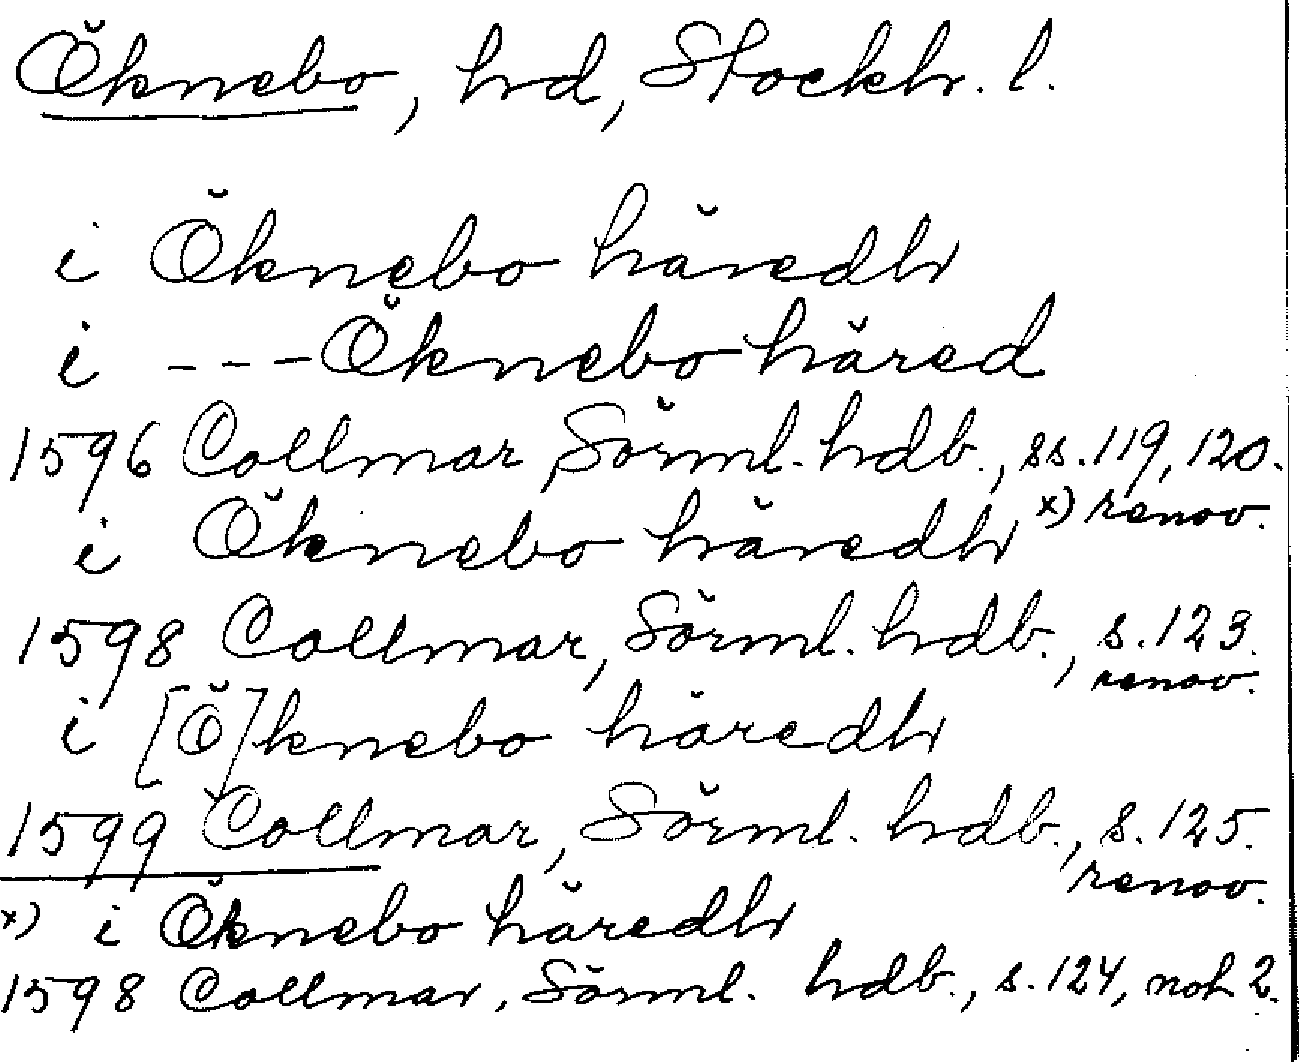 Öknebo, hd, Stockh. l.
i Öknebo häredh
i --- Öknebo häred
1596 Collmar, Sörml. hdb., ss. 119, 120.
x) renov.
i Öknebo häredh
1598 Collmar, Sörml. hdb., s. 123.
renov.
i [Ö]knebo häredh
1599 Collmar, Sörml. hdb., s. 125.
renov.
x) i Öknebo häredh
1598 Collmar, Sörml. hdb., s. 124, noh 2.